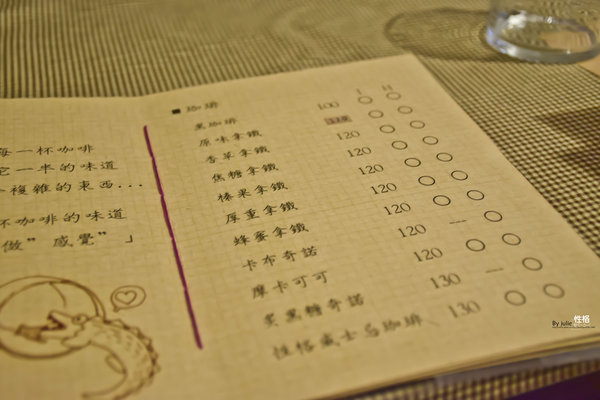 每一杯咖啡
它一半的味道
複雜的東西...
杯咖啡的味道
做”感覺”」
■ 咖啡 I H
黑咖啡 100
原味拿鐵
香草拿鐵 120
焦糖拿鐵 120
榛果拿鐵 120
厚重拿鐵 120
蜂蜜拿鐵 120
卡布奇諾 120
摩卡可可 120
炙黑糖奇諾 130
性格威士忌咖啡 130
By Julie 性格